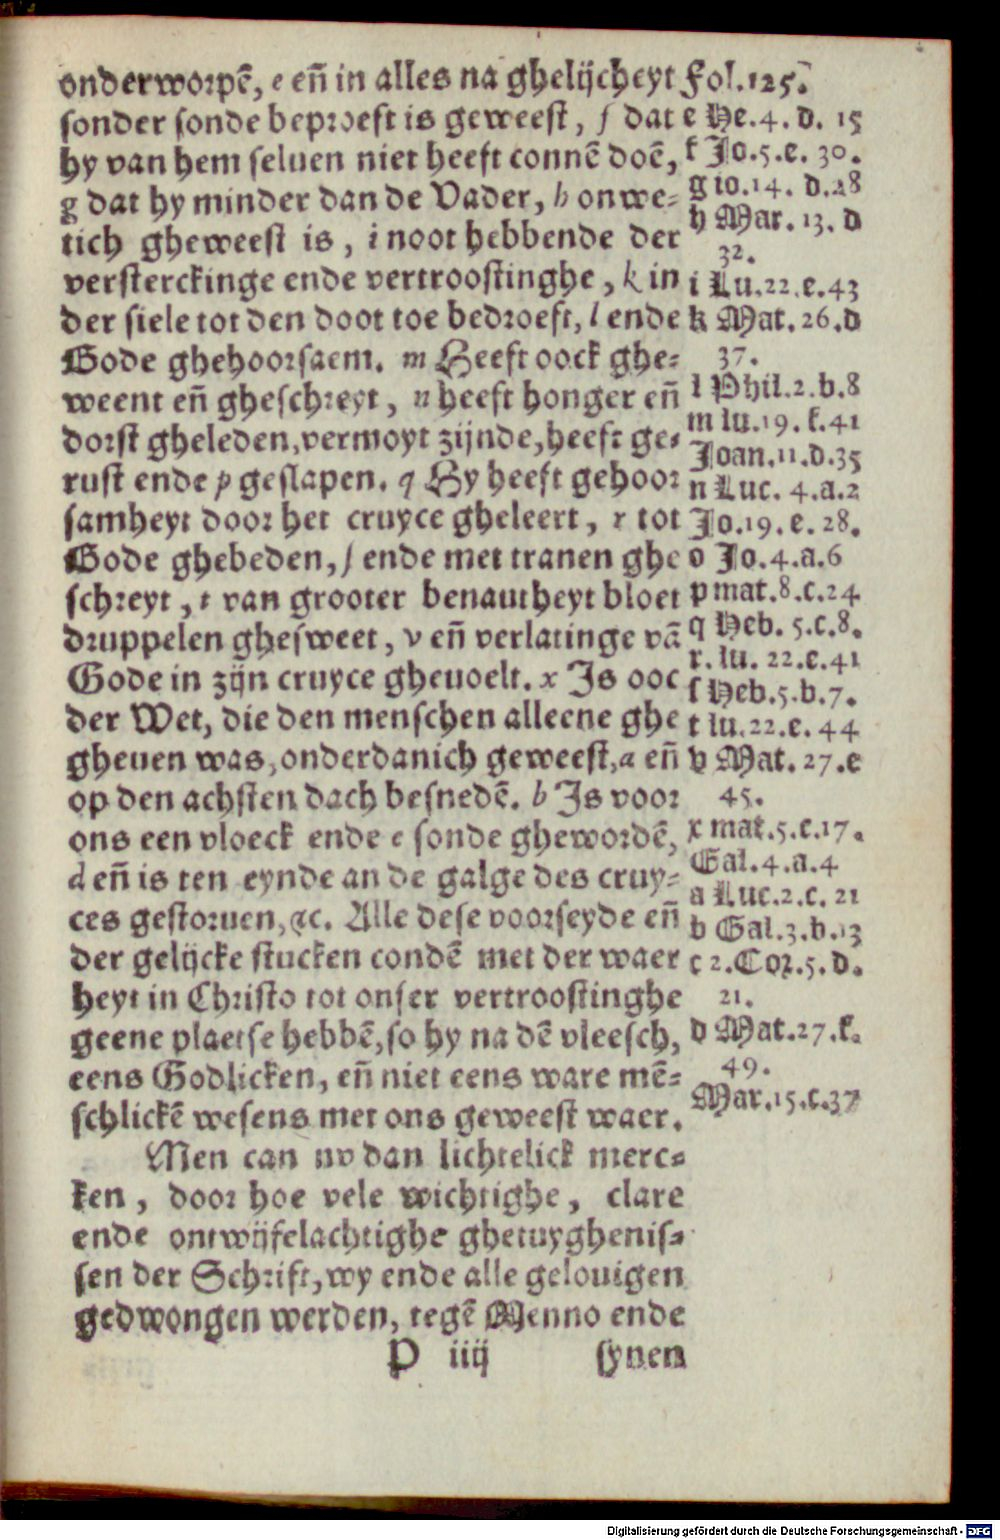 Fol.125.
onderworpē, e eñ in alles na ghelijcheyt
sonder sonde beproeft is geweest, f dat
hy van hem seluen niet heeft connē doē,
g dat hy minder dan de Vader, h onwe-
tich gheweest is, i noot hebbende der
versterckinge ende vertroostinghe, k in
der siele tot den doot toe bedroeft, l ende
Gode ghehoorsaem. m Heeft oock ghe-
weent eñ gheschreyt, n heeft honger eñ
dorst gheleden, vermoyt zijnde, heeft ge-
rust ende p geslapen. q Hy heeft gehoor
samheyt door het cruyce gheleert, r tot
Gode ghebeden, s ende met tranen ghe
schreyt, t van grooter benautheyt bloet
druppelen ghesweet, v eñ verlatinge vā
Gode in zijn cruyce gheuoelt. x Is ooc
der Wet, die den menschen alleene ghe
gheuen was, onderdanich geweest, a eñ
op den achsten dach besnedē. b Is voor
ons een vloeck ende c sonde ghewordē,
d eñ is ten eynde an de galge des cruy-
ces gestoruen, &c. Alle dese voorseyde eñ
der gelijcke stucken condē met der waer
heyt in Christo tot onser vertroostinghe
geene plaetse hebbē, so hy na dē vleesch,
eens Godlicken, eñ niet eens ware mē-
schlickē wesens met ons geweest waer.
Men can nv dan lichtelick merc-
ken, door hoe vele wichtighe, clare
ende ontwijfelachtighe ghetuyghenis-
sen der Schrift, wy ende alle gelouigen
gedwongen werden, tegē Menno ende
P iiij synen
e He.4.d. 15
f Jo.5.e. 30.
g io.14. d.28
h Mar. 13. d
32.
i Lu.22.e.43
k Mat.26.d
37.
l Phil.2.b.8
m lu.19. f.41
Joan.11.d.35
n Luc. 4.a.2
Jo.19.e. 28.
o Jo.4.a.6
p mat.8.c.24
q Heb. 5.c.8.
r. lu. 22.e.41
s Heb.5.b.7.
t lu.22.e. 44
v Mat. 27.e
45.
x mat.5.c.17.
Gal.4.a.4
a Luc.2.c. 21
b Gal.3.b.13
c 2.Cor.5.d.
21.
d Mat.27.f.
49.
Mar.15.c.37
Digitalisierung gefördert durch die Deutsche Forschungsgemeinschaft - DFG